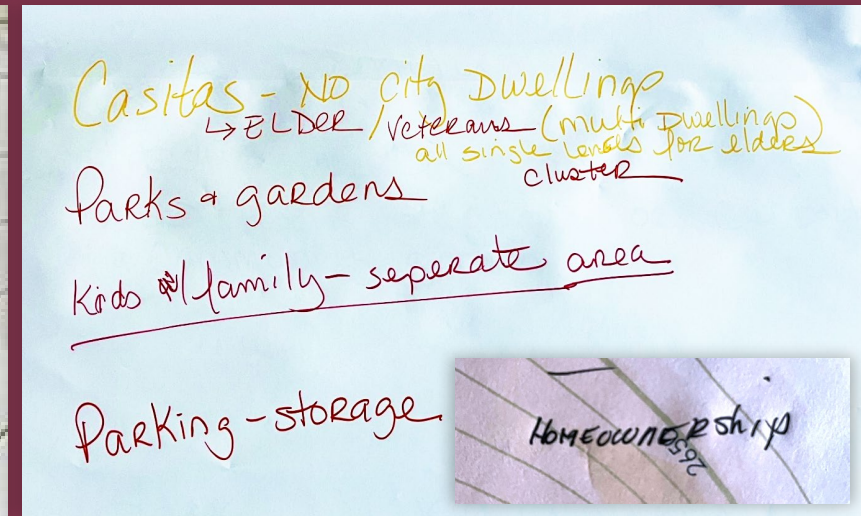 Casitas - No city Dwellings
↳ ELDER / Veterans (multi Dwellings)
all single levels for elders
cluster
Parks & gardens
Kids w/ family - seperate area
Parking - storage
HOMEOWNERShips
2655